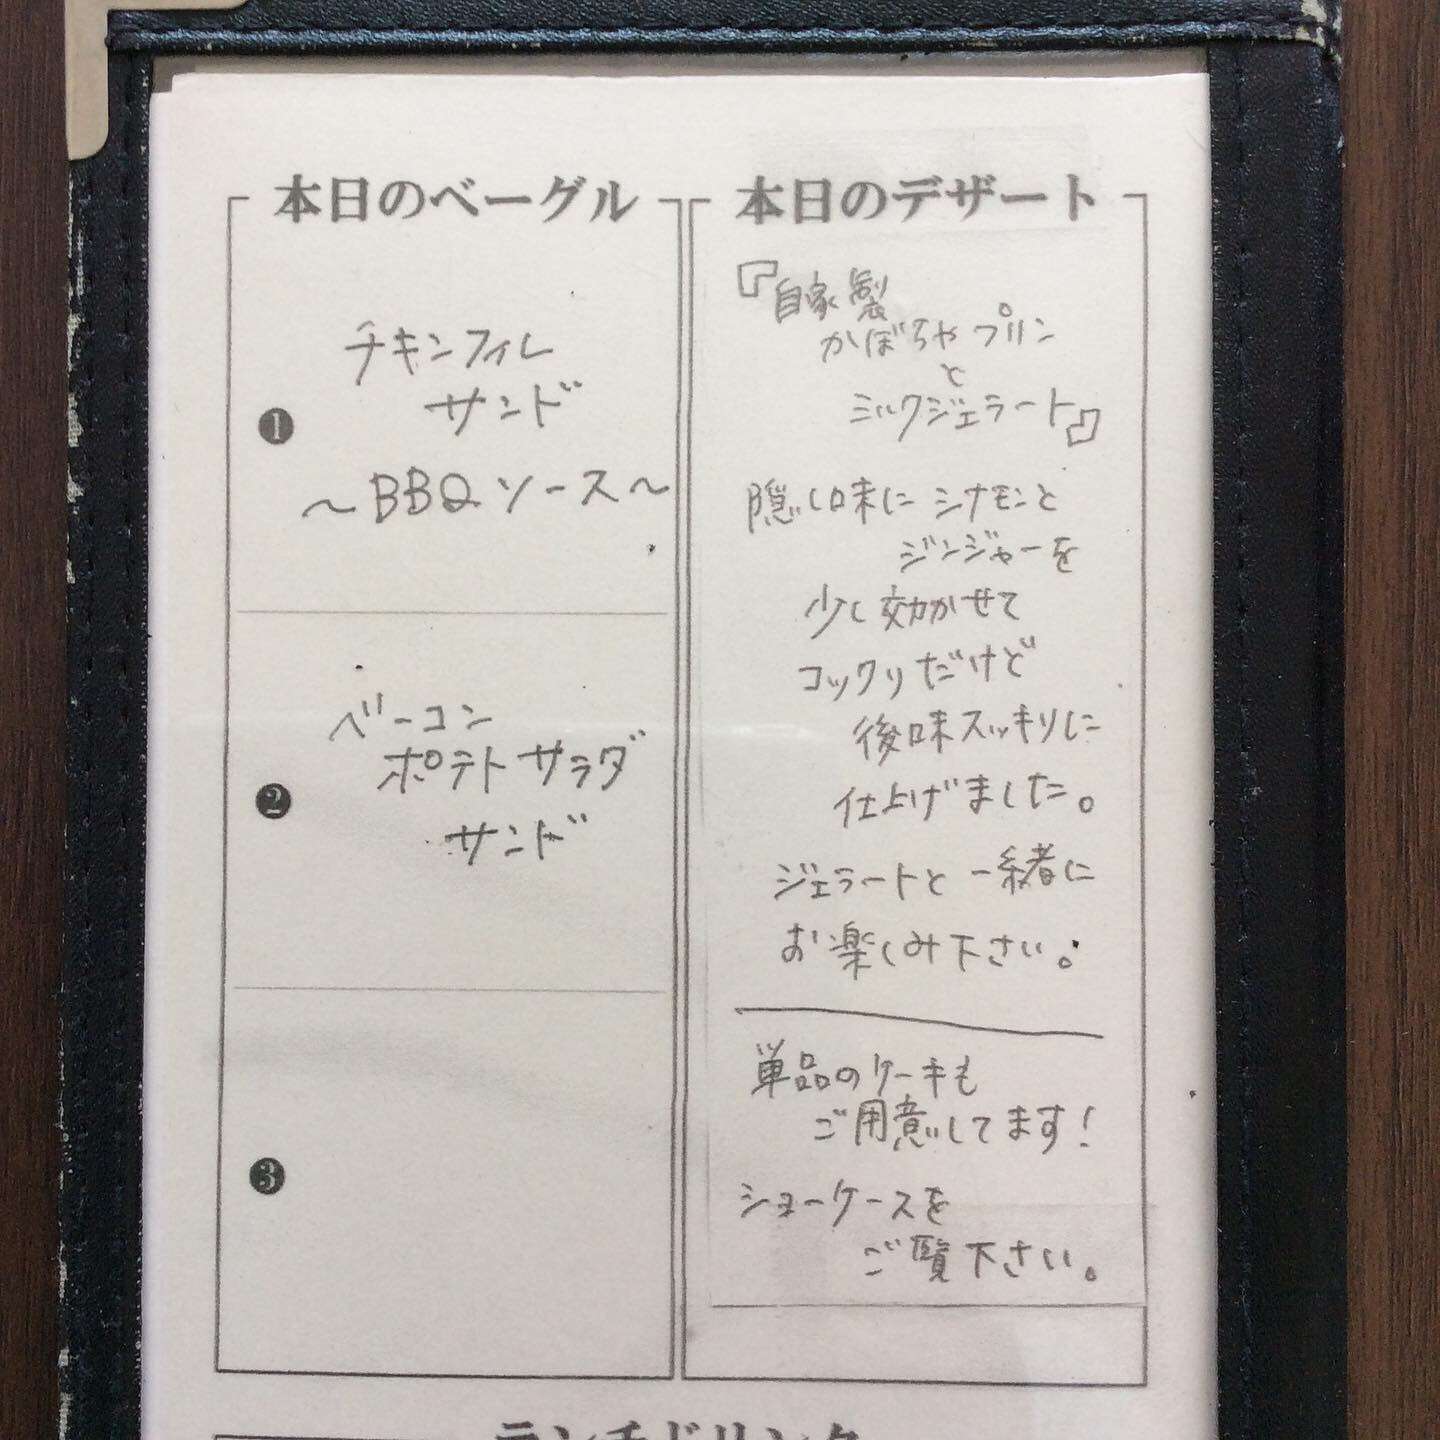 本日のベーグル
❶
チキンフィレ
サンド
～BBQソース～
❷
ベーコン
ポテトサラダ
サンド
❸
本日のデザート
『自家製
かぼちゃプリン
と
ミルクジェラート』
隠し味にシナモンと
ジンジャーを
少し効かせて
コックリだけど
後味スッキリに
仕上げました。
ジェラートと一緒に
お楽しみ下さい。
単品のケーキも
ご用意してます！
ショーケースを
ご覧下さい。
ランチドリンク